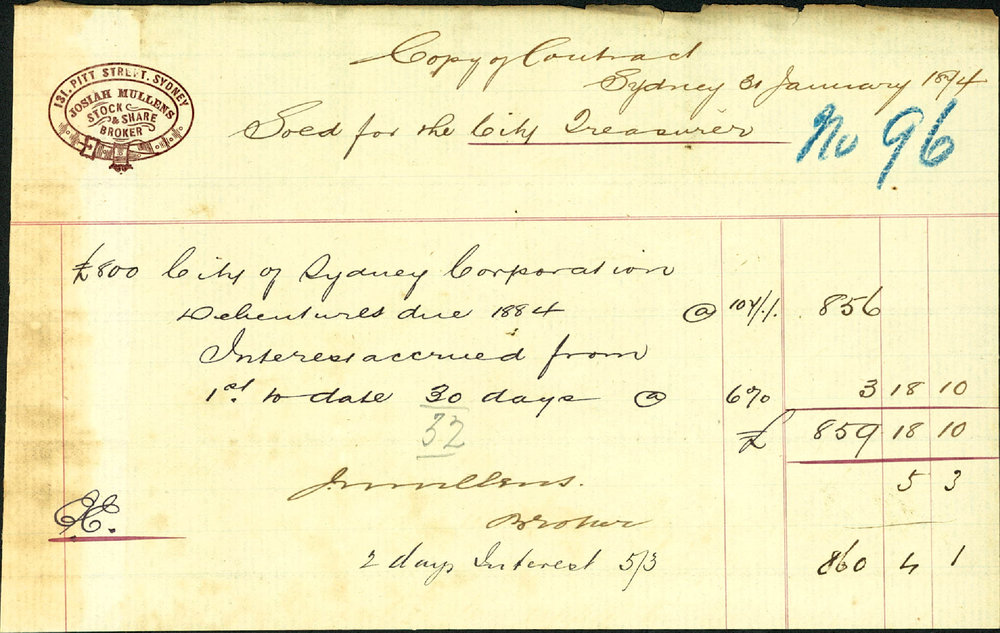 Copy of Contract
131. PITT STREET. SYDNEY
JOSIAH MULLENS
STOCK
& SHARE
BROKER
Sydney 31 January 1874
Sold for the City Treasurer
No 96
£800 City of Sydney Corporation
Debentures due 1884 @ 107/. 856
Interest accrued from
1st. to date 30 days @ 6% 3 18 10
32
£ 859 18 10
J Mullens.
5 3
Broker
2 days Interest 5/3 860 4 1